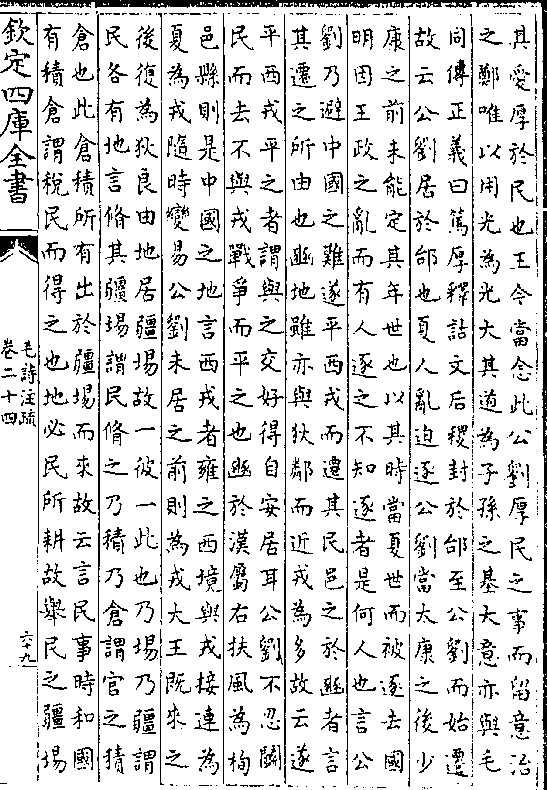 其愛厚於民也王今當念此公劉厚民之事而留意治
之鄭唯以用光為光大其道為子孫之基大意亦與毛
同傳正義曰篤厚釋詁文后稷封於邰至公劉而始遷
故云公劉居於邰也夏人亂迫逐公劉當大康之後少
康之前未能定其年世也以其時當夏世而被逐去國
明因王政之亂而有人逐之不知逐者是何人也言公
劉乃避中國之難遂平西戎而遷其民邑之於豳者言
其遷之所由也豳地雖亦與狄鄰而近戎為多故云遂
平西戎平之者謂與之交好得自安居耳公劉不忍鬬
民而去不與戎戰爭而平之也豳於漢屬右扶風為栒
邑縣則是中國之地言西戎者雍之西境與戎接連為
夏為戎隨時變易公劉未居之前則為戎大王既來之
後復為狄良由地居疆埸故一彼一此也乃埸乃疆謂
民各有地言脩其疆埸謂民脩之乃積乃倉謂官之積
倉也此倉積所有出於疆埸而來故云言民事時和國
有積倉謂稅民而得之也地必民所耕故舉民之疆埸
欽定四庫全書
毛詩注疏
卷二十四
六十九